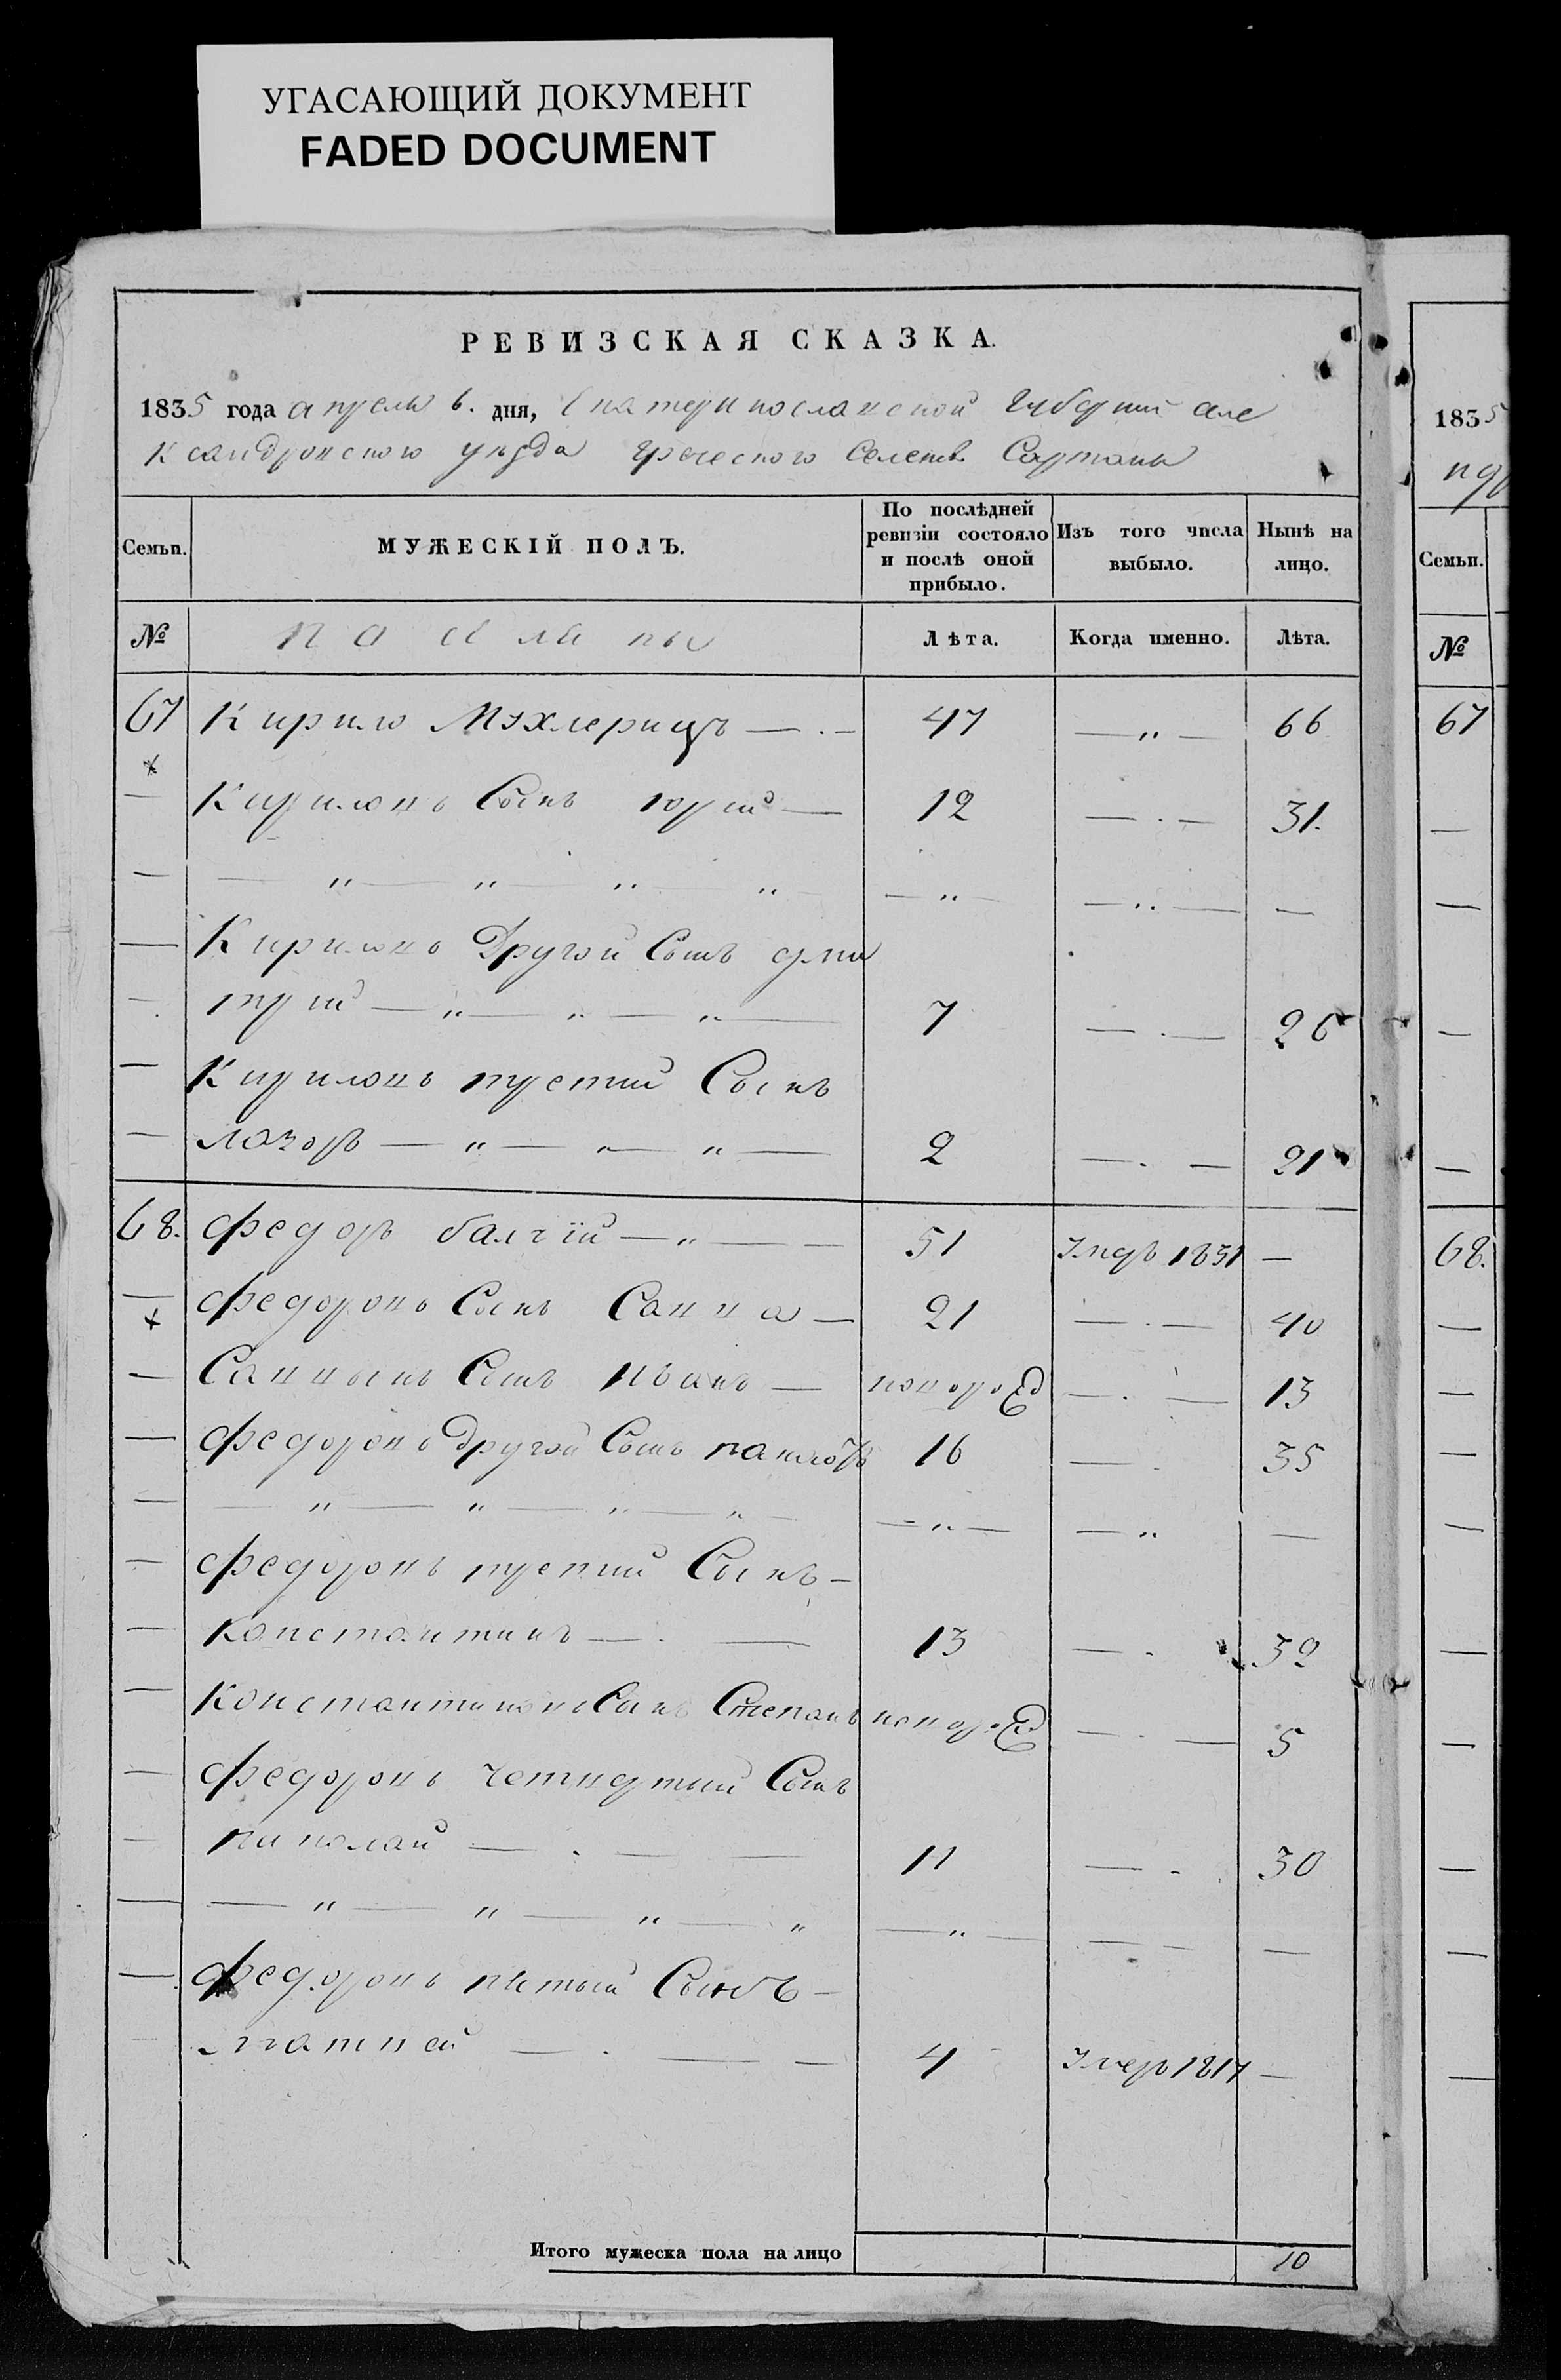 УГАСАЮЩИЙ ДОКУМЕНТ
FADED DOCUMENT
РЕВИЗСКАЯ СКАЗКА.
1835 года апреля 6. дня, Екатеринославской Губернии Але
ксандровского уезда Греческого Селения Сартаны
1835
Семьи.
МУЖЕСКІЙ ПОЛЪ.
По послѣдней ревизіи состояло и послѣ оной прибыло.
Изъ того числа выбыло.
Нынѣ на лицо.
Семьи.
№
Лѣта.
Когда именно.
Лѣта.
№
67 Кирило Мэхлерицъ — 47 — 66 67
Кириловъ Сынъ юрій — 12 — 31.
Кириловъ Другой Сынъ дми
трій — 7 — 26
Кириловъ третий Сынъ
лазоръ — 2 — 21
68. федоръ балчій — 51 Умръ 1831 — 68.
федоровъ Сынъ Савва — 21 — 40
Саввынъ Сынъ иванъ — новорοЕд — 13
федоровъ Другой Сынъ павлоръ 16 — 35
федоровъ третий Сынъ —
константинъ — 13 — 32
константиновъ Сынъ Степанъ новорοЕд — 5
федоровъ четвертый Сынъ
николай — 11 — 30
федоровъ пятый Сынъ —
матвей — 4 Умеръ 1817 —
Итого мужеска пола на лицо 10